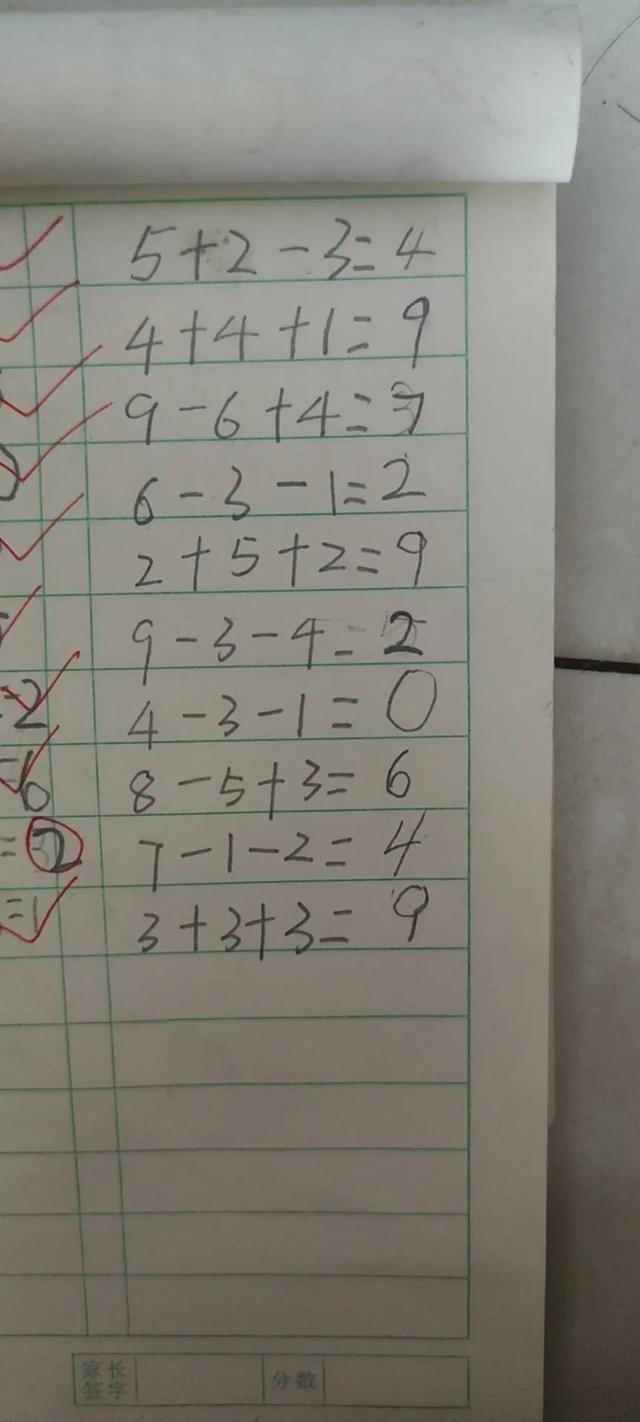 5+2-3=4
4+4+1=9
9-6+4=7
6-3-1=2
2+5+2=9
9-3-4=2
=2 4-3-1=0
=6 8-5+3=6
=2 7-1-2=4
=1 3+3+3=9
家长签字 分数